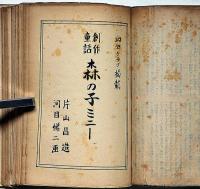 創作
童話
森の子ミニー
片山昌造
河目悌二画